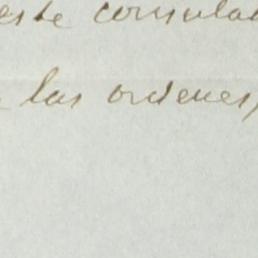 este consulad
las ordenes,